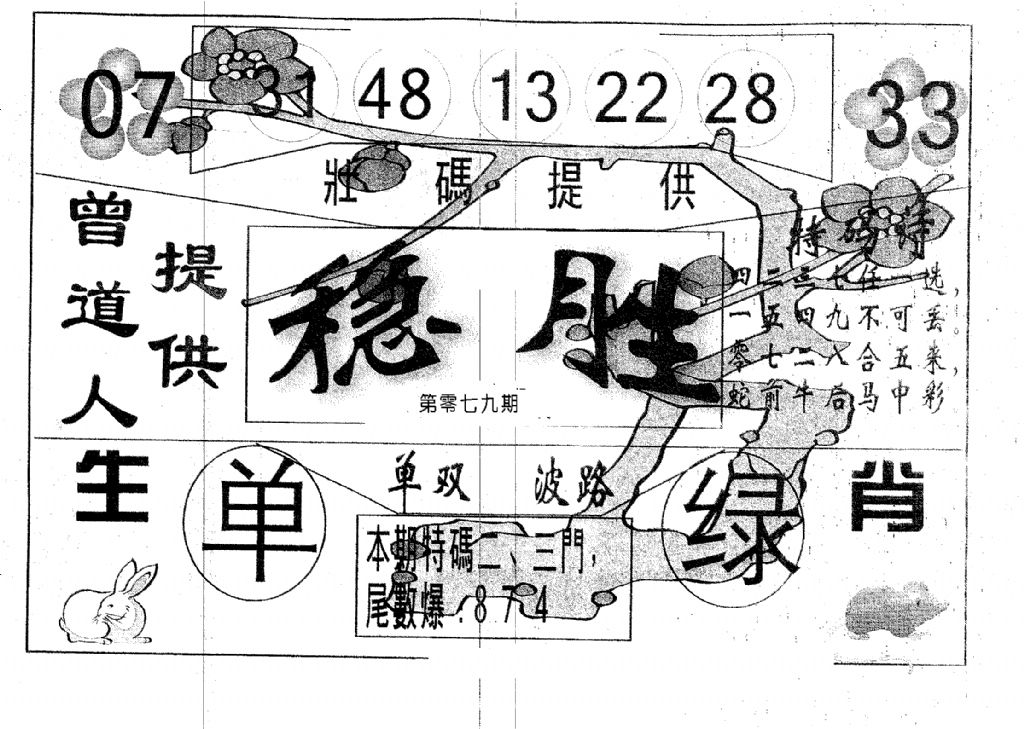 07 31 48 13 22 28 33
壯碼提供
曾道人
提供
稳胜
第零七九期
特码诗
四二三七任一选,
一五四九不可丢。
零七二八合五来,
蛇前牛后马中彩
生肖
单
单双 波路
绿
本期特碼二、三門,
尾數爆:874